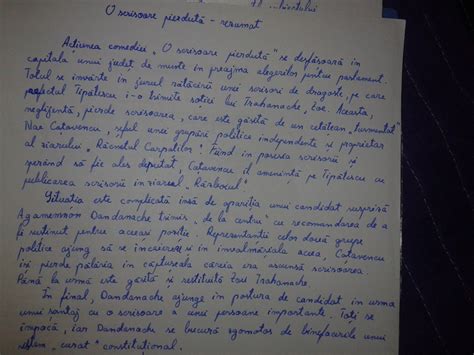 O scrisoare pierdută - rezumat
Acțiunea comediei „O scrisoare pierdută" se desfășoară în
capitala unui județ de munte în preajma alegerilor pentru parlament.
Totul se învârte în jurul rătăcirii unei scrisori de dragoste, pe care
prefectul Tipătescu i-o trimite soției lui Trahanache, Zoe. Aceasta,
neglijentă, pierde scrisoarea, care este găsită de un cetățean „turmentat"
Nae Cațavencu, șeful unei grupări politice independente și proprietar
al ziarului „Răcnetul Carpaților". Fiind în posesia scrisorii și
sperând să fie ales deputat, Cațavencu îl amenință pe Tipătescu cu
publicarea scrisorii în ziarul „Războiul".
Situația este complicată însă de apariția unui candidat surpriză
Agamemnon Dandanache trimis „de la centru" cu recomandarea de a
fi susținut pentru aceeași poziție. Reprezentanții celor două grupe
politice ajung să se încaiere și în învălmășeala aceea, Cațavencu
își pierde pălăria în căptușeala căreia era ascunsă scrisoarea.
Până la urmă este găsită și restituită Zoei Trahanache.
În final, Dandanache ajunge în postura de candidat în urma
unui șantaj cu o scrisoare a unei persoane importante. Toți se
împacă, iar Dandanache se bucură zgomotos de binefacerile unui
sistem „curat" constituțional.